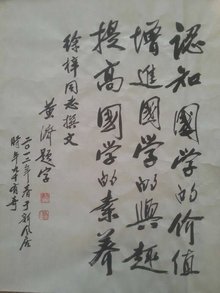 認知國学的价值
增進國学的興趣
提高國学的素养
徐梓同志撰文
黄濟題字
二〇一二年春于新風居
時年九十有奇